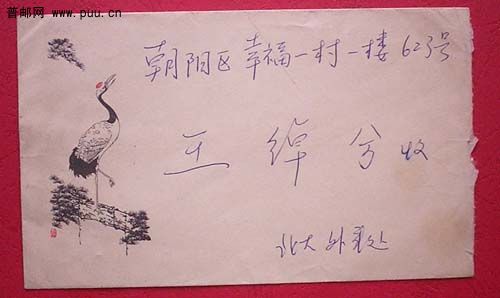 普邮网 www.puu.cn
朝阳区幸福一村一楼623号
王绰兮收
北大外事处